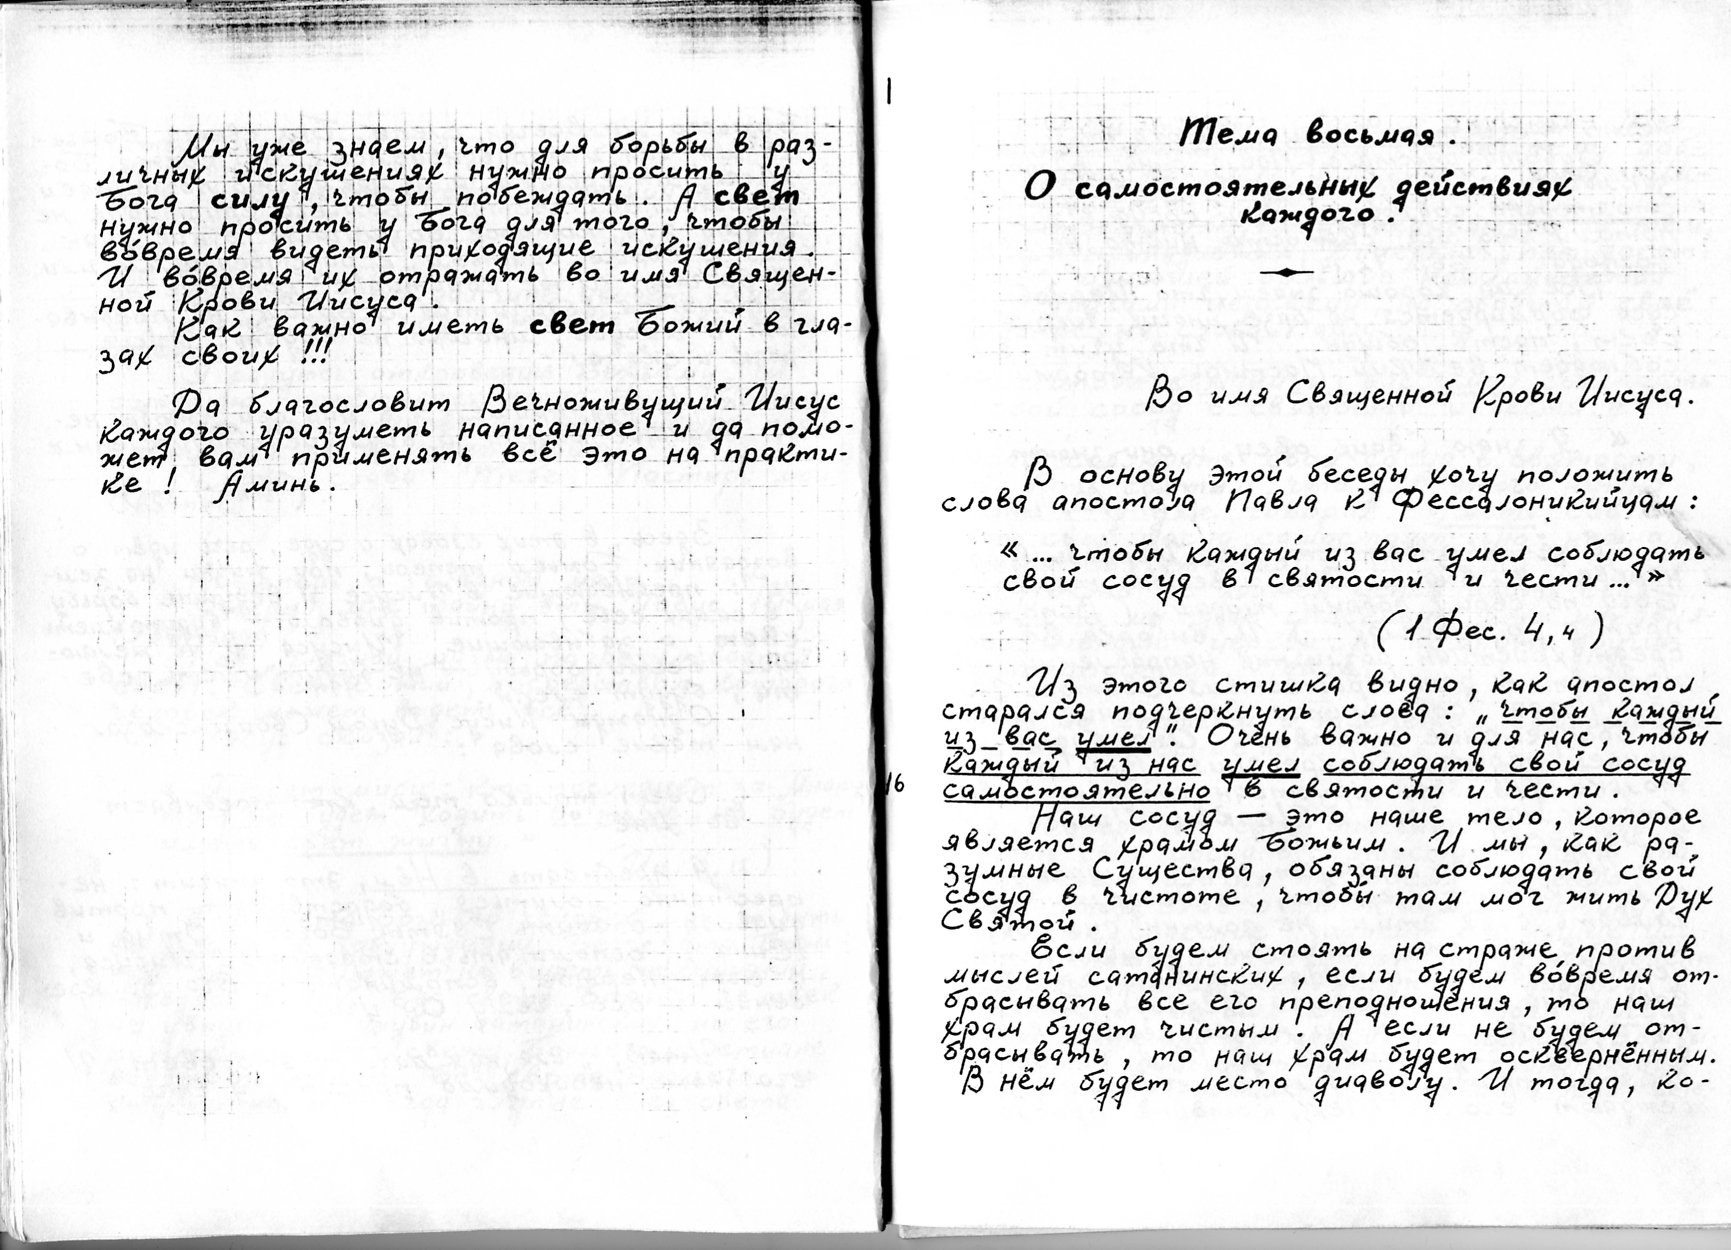 Мы уже знаем, что для борьбы в раз-
личных искушениях нужно просить у
Бога силу, чтобы побеждать. А свет
нужно просить у Бога для того, чтобы
во́время видеть приходящие искушения.
И во́время их отражать во имя Священ-
ной Крови Иисуса.
Как важно иметь свет Божий в гла-
зах своих!!!
Да благословит Вечноживущий Иисус
каждого уразуметь написанное и да помо-
жет вам применять всё это на практи-
ке! Аминь.
Тема восьмая.
О самостоятельных действиях
каждого.
Во имя Священной Крови Иисуса.
В основу этой беседы хочу положить
слова апостола Павла к Фессалоникийцам:
«... чтобы каждый из вас умел соблюдать
свой сосуд в святости и чести...»
(1 Фес. 4,4)
Из этого стишка видно, как апостол
старался подчеркнуть слова: „чтобы каждый
из вас умел". Очень важно и для нас, чтобы
каждый из нас умел соблюдать свой сосуд
самостоятельно в святости и чести.
16
Наш сосуд — это наше тело, которое
является храмом Божьим. И мы, как ра-
зумные Существа, обязаны соблюдать свой
сосуд в чистоте, чтобы там мог жить Дух
Святой.
Если будем стоять на страже против
мыслей сатанинских, если будем во́время от-
брасывать все его преподношения, то наш
храм будет чистым. А если не будем от-
брасывать, то наш храм будет осквернённым.
В нём будет место диаволу. И тогда, ко-